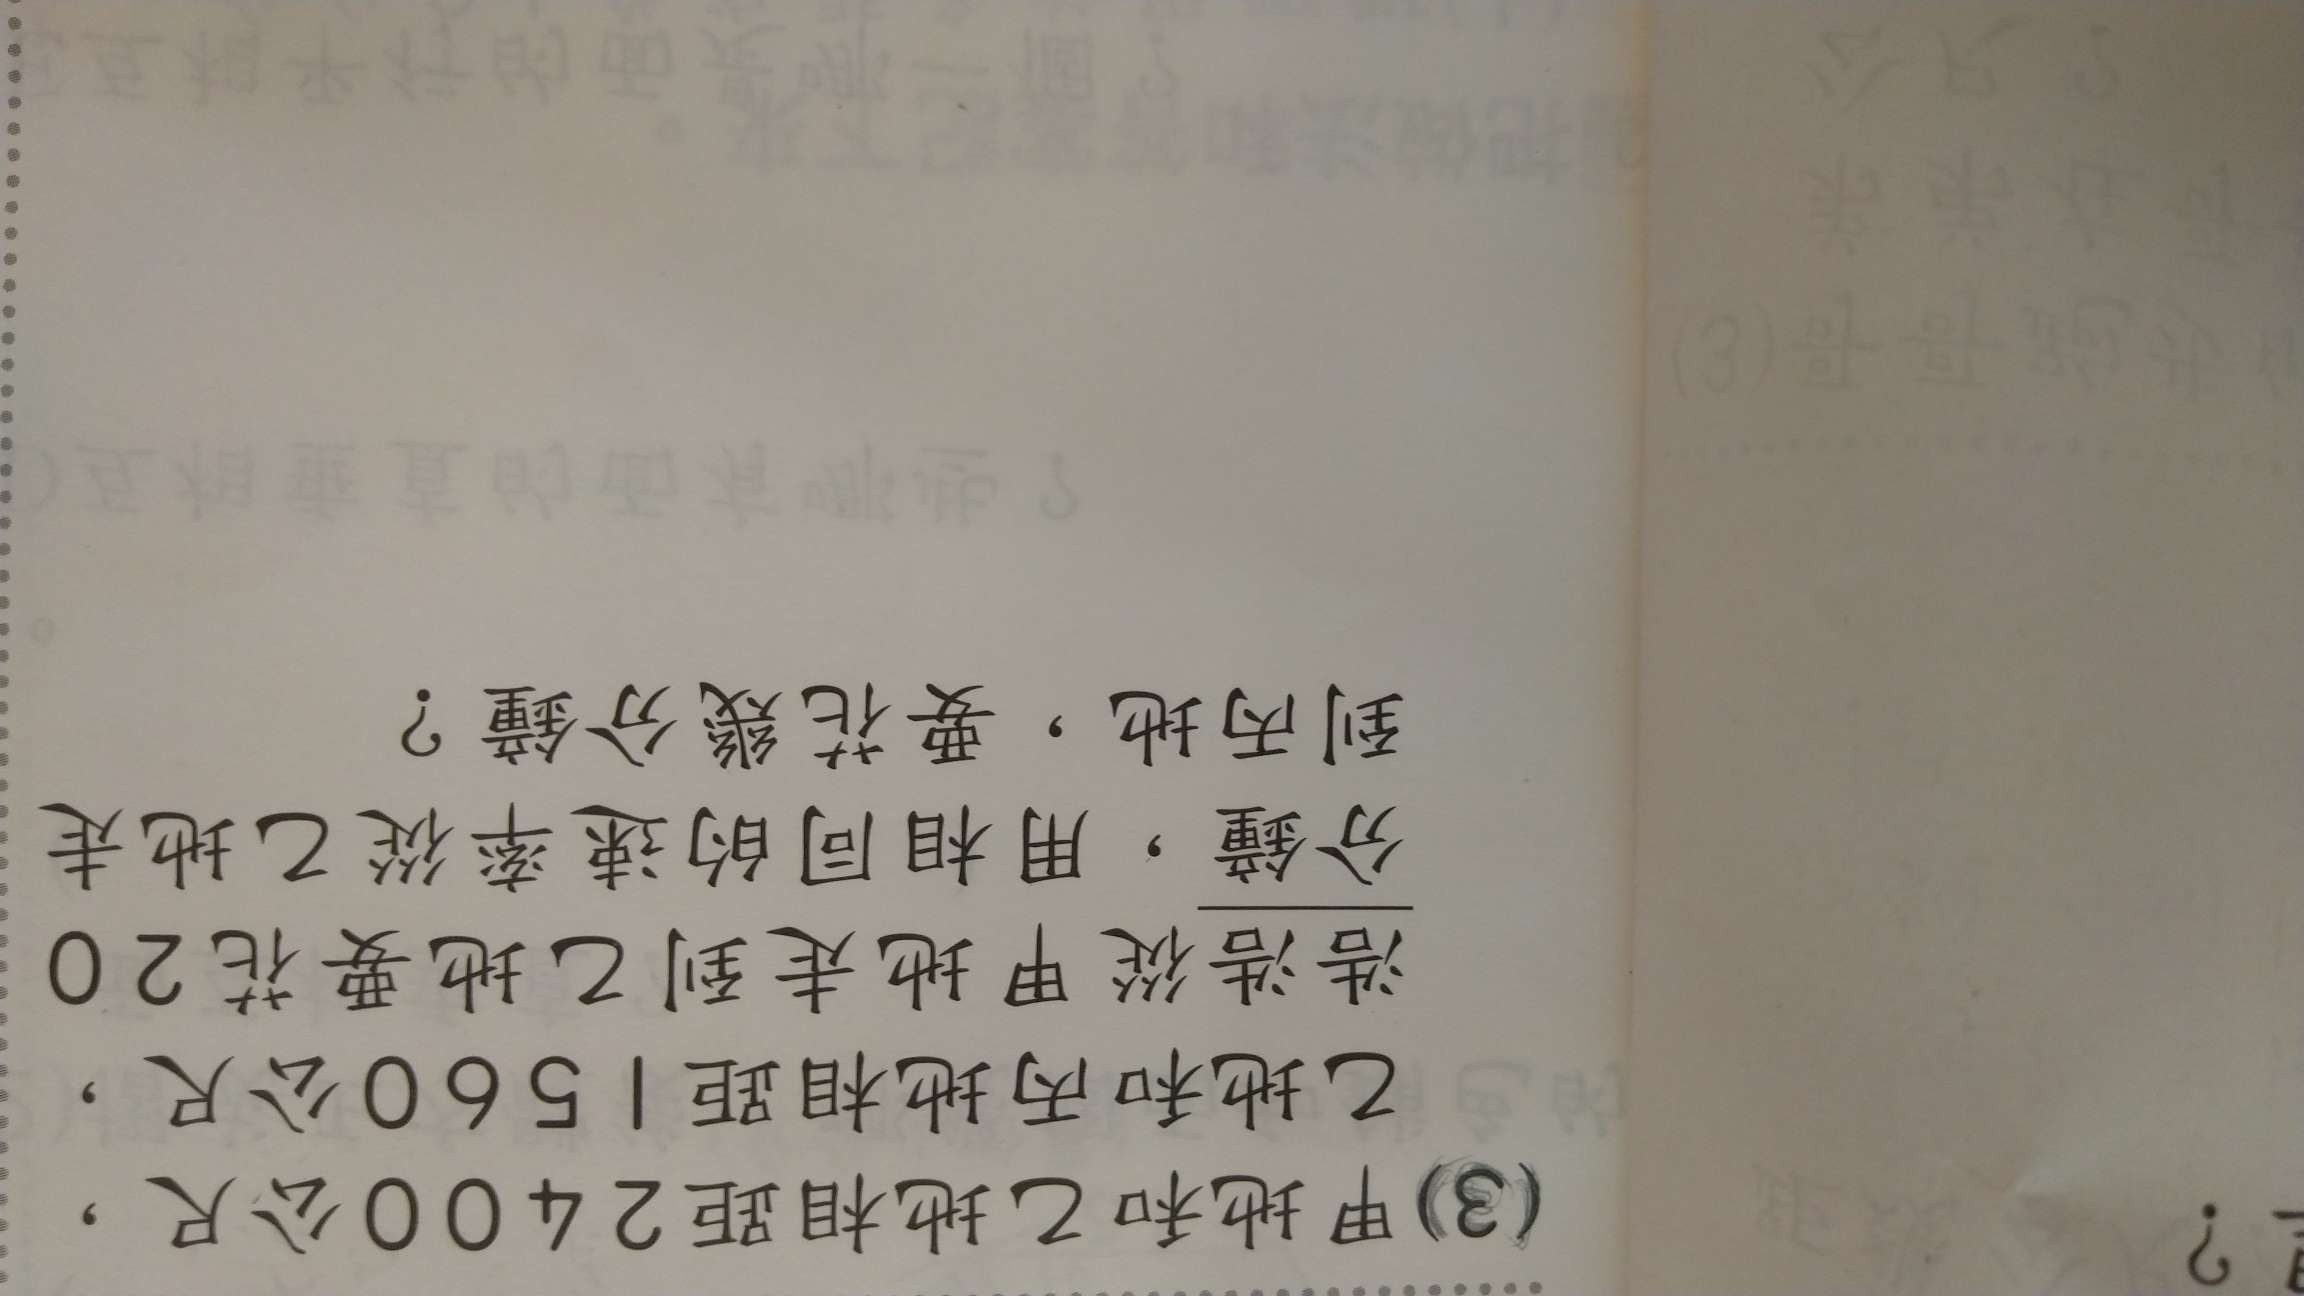 (3)甲地和乙地相距2400公尺，
乙地和丙地相距1560公尺，
浩浩從甲地走到乙地要花20
分鐘，用相同的速率從乙地走
到丙地，要花幾分鐘？
？